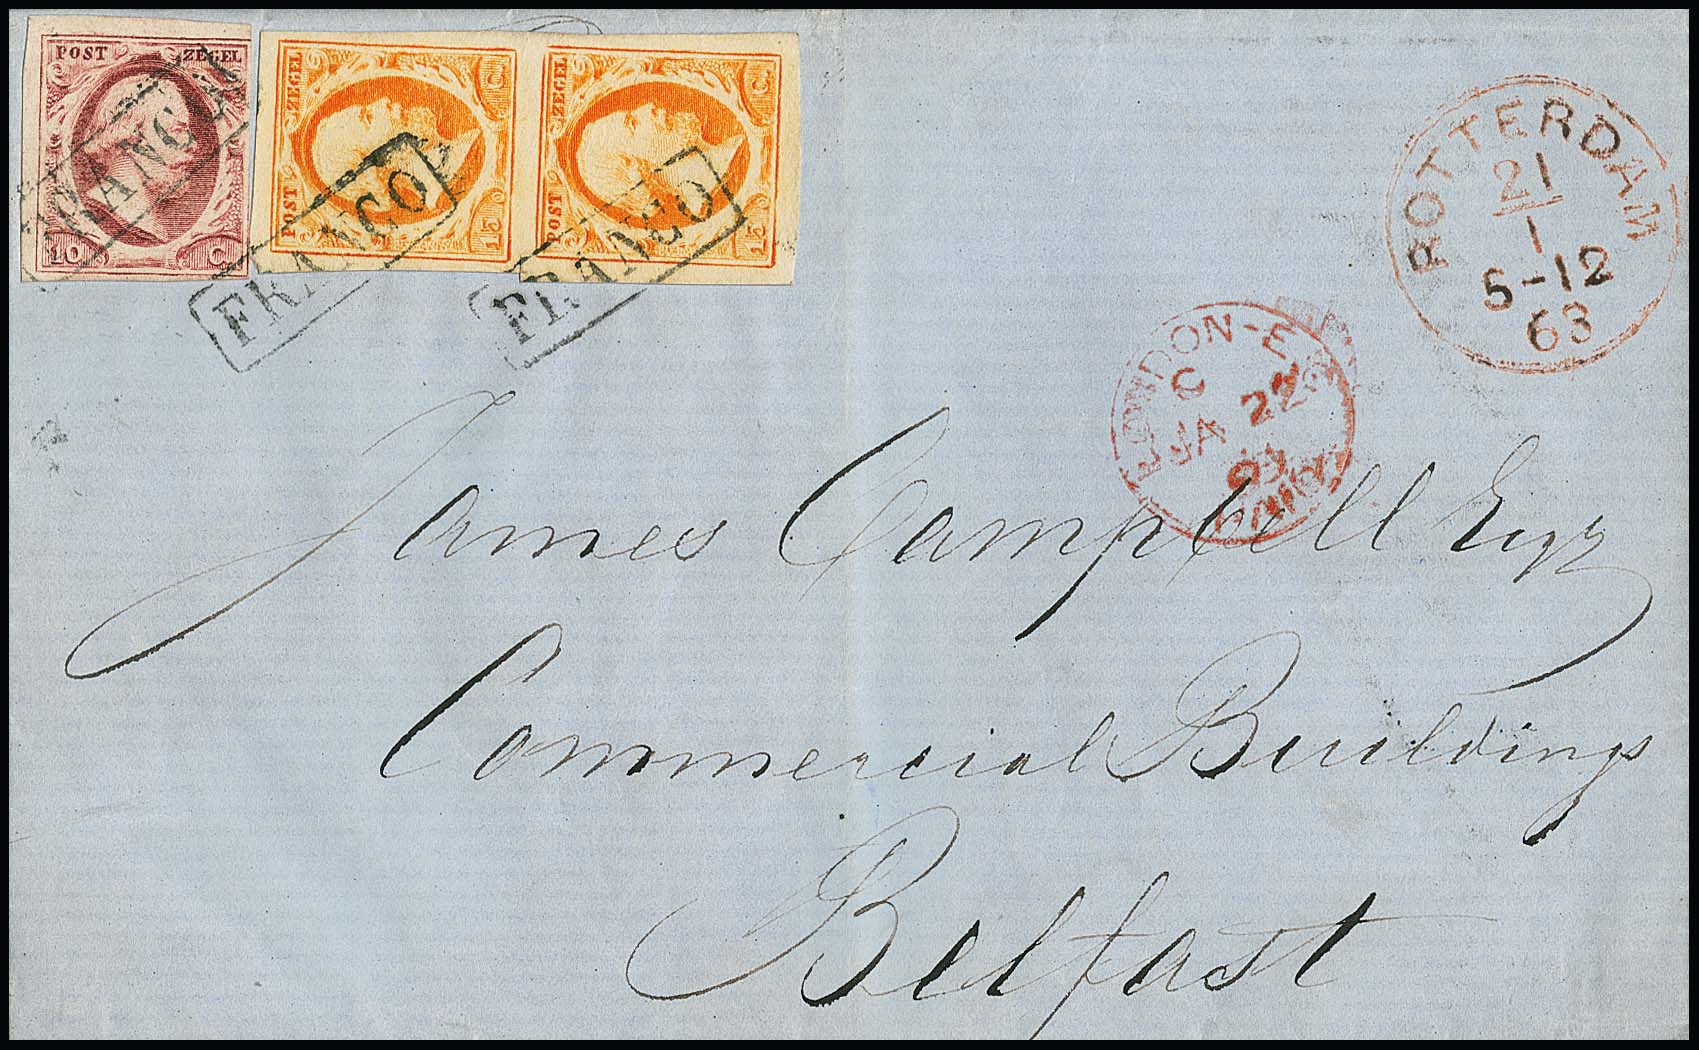 POST ZEGEL
10 C
FRANCO
POST ZEGEL
15 C.
FRANCO
POST ZEGEL
15 C.
FRANCO
ROTTERDAM
21
1
5-12
63
LONDON-E
C
JA 22
63
PAID
James Campbell Esqr
Commercial Buildings
Belfast